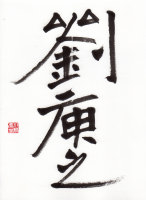 劉庚之